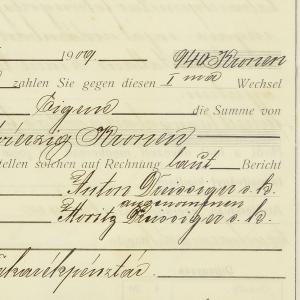 1909. 940 Kronen
zahlen Sie gegen diesen Ima Wechsel
Eigene die Summe von
vierzig Kronen
stellen solchen auf Rechnung laut Bericht
Anton Dreissiger s. k.
angenommen
Moritz Dreissiger s. k.
takarékpénztár.